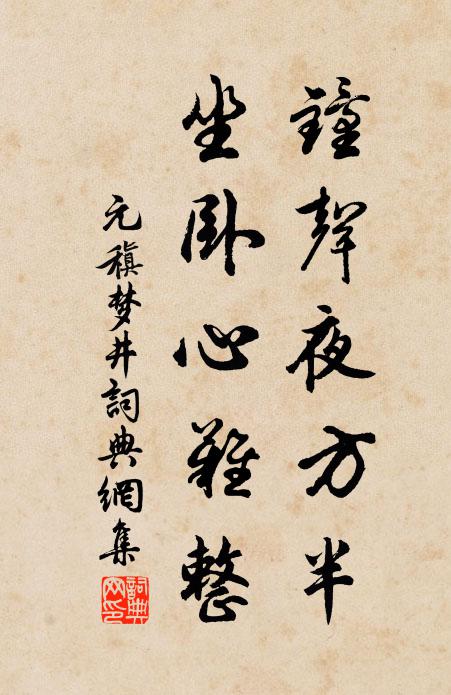 鐘聲夜方半
坐卧心難整
元稹梦井詞典網集
詞典网印